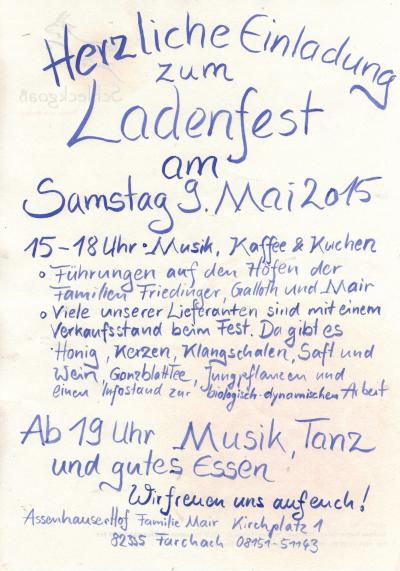 Herzliche Einladung
zum
Ladenfest
am
Samstag 9. Mai 2015
15-18 Uhr • Musik, Kaffee & Kuchen
o Führungen auf den Höfen der
Familien Friedinger, Galloth und Mair
o Viele unserer Lieferanten sind mit einem
Verkaufsstand beim Fest. Da gibt es
Honig, Kerzen, Klangschalen, Saft und
Wein, Ganzblatttee, Jungpflanzen und
einen Infostand zur biologisch-dynamischen Arbeit
Ab 19 Uhr Musik, Tanz
und gutes Essen
Wir freuen uns auf euch!
Assenhauser Hof Familie Mair Kirchplatz 1
82335 Farchach 08151-51143